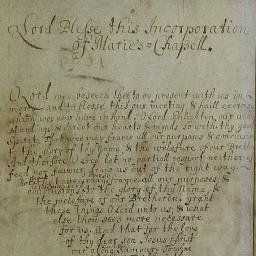 Lord Blesse this Incorporation
of Marie's=Chapell.
O Lord we beseech thee to be present with us in
mercy and to blesse this our meeting & haill exercise
which wee now have in hand. O Lord Enlighten our under
standings & direct our hearts & minds so with thy good
Spirit, that wee may frame all our purposes & conclusions
to the glory of thy Name & the welefare of our Brethren
And therfore O Lord let no partiall respect neither of
feed nor favour, draw us out of the right way.
But grant that wee may frame all our purposes &
conclusions to the glory of thy Name, &
the welefare of our Brethren. Grant
these things O Lord unto us, & what
else thou sees more necessare
for us, And that for the love
of thy dear son Jesus Christ
our alone Saviour